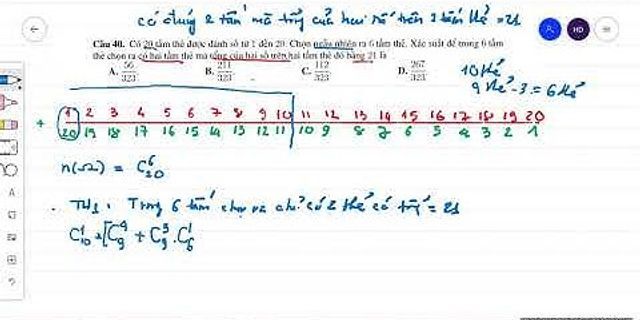 có đúng 2 tấm mà tổng của hai số trên 2 tấm thẻ = 21
HD
Câu 40. Có 20 tấm thẻ được đánh số từ 1 đến 20. Chọn ngẫu nhiên ra 6 tấm thẻ. Xác suất để trong 6 tấm
thẻ chọn ra có hai tấm thẻ mà tổng của hai số trên hai tấm thẻ đó bằng 21 là
A. 56/323. B. 211/323. C. 112/323. D. 267/323.
10 thẻ
9 thẻ - 3 = 6 thẻ
1 2 3 4 5 6 7 8 9 10 11 12 13 14 15 16 17 18 19 20
+ 20 19 18 17 16 15 14 13 12 11 10 9 8 7 6 5 4 3 2 1
n(Ω) = C⁶₂₀
TH1: Trong 6 tấm chọn ra chỉ có 2 thẻ có tổng = 21
C¹₁₀ × [C⁴₉ + C³₉ . C¹₆